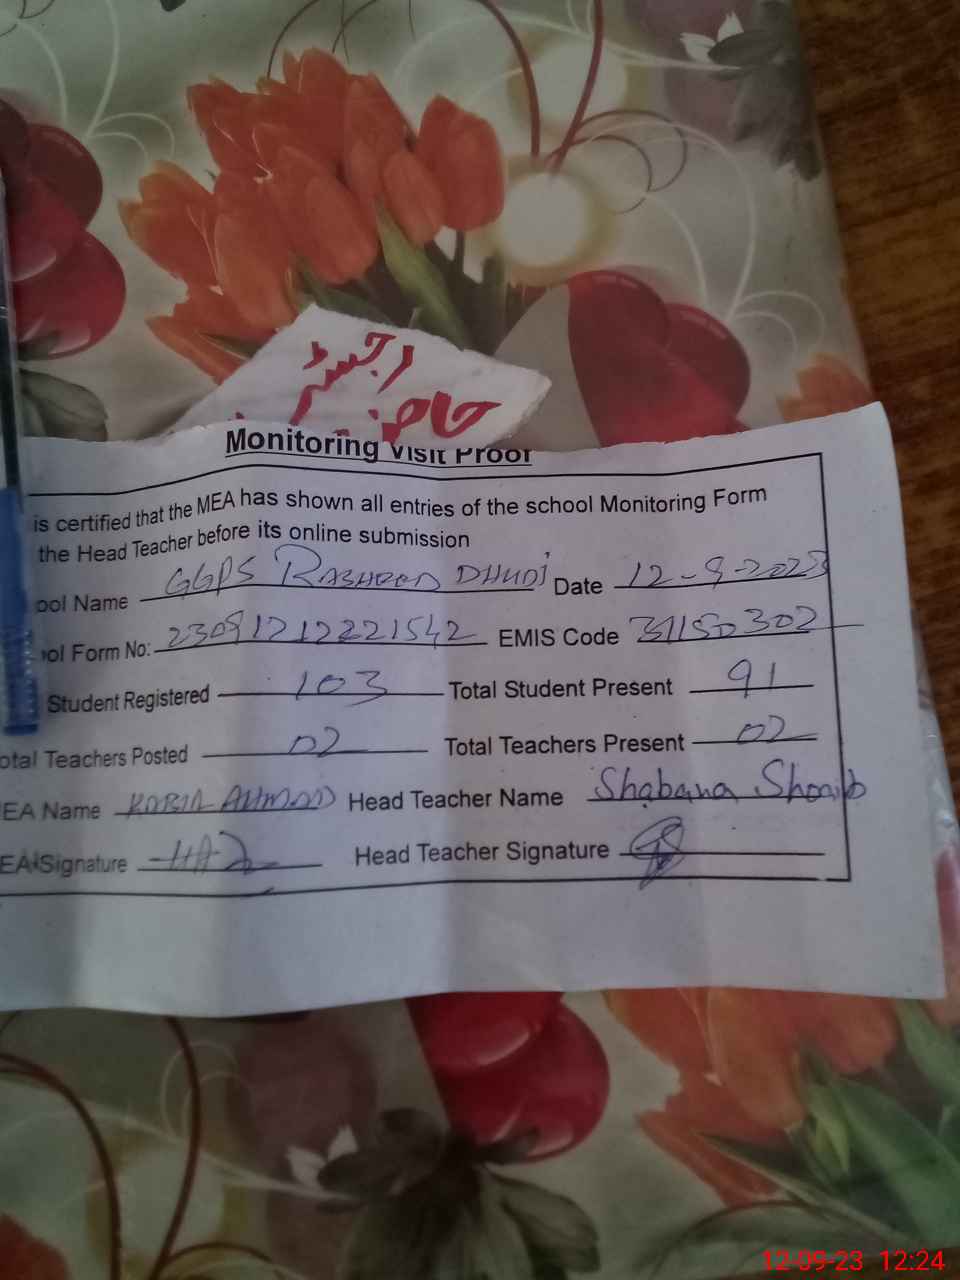 رجسٹر
حاضری
Monitoring Visit Proof
is certified that the MEA has shown all entries of the school Monitoring Form
the Head Teacher before its online submission
ool Name GGPS RASHEED DHUDI Date 12-9-2023
ol Form No: 23091212221542 EMIS Code 31150302
Student Registered 103 Total Student Present 91
otal Teachers Posted 02 Total Teachers Present 02
EA Name AHMAD Head Teacher Name Shabana Shoaib
EA Signature Head Teacher Signature
12-09-23 12:24